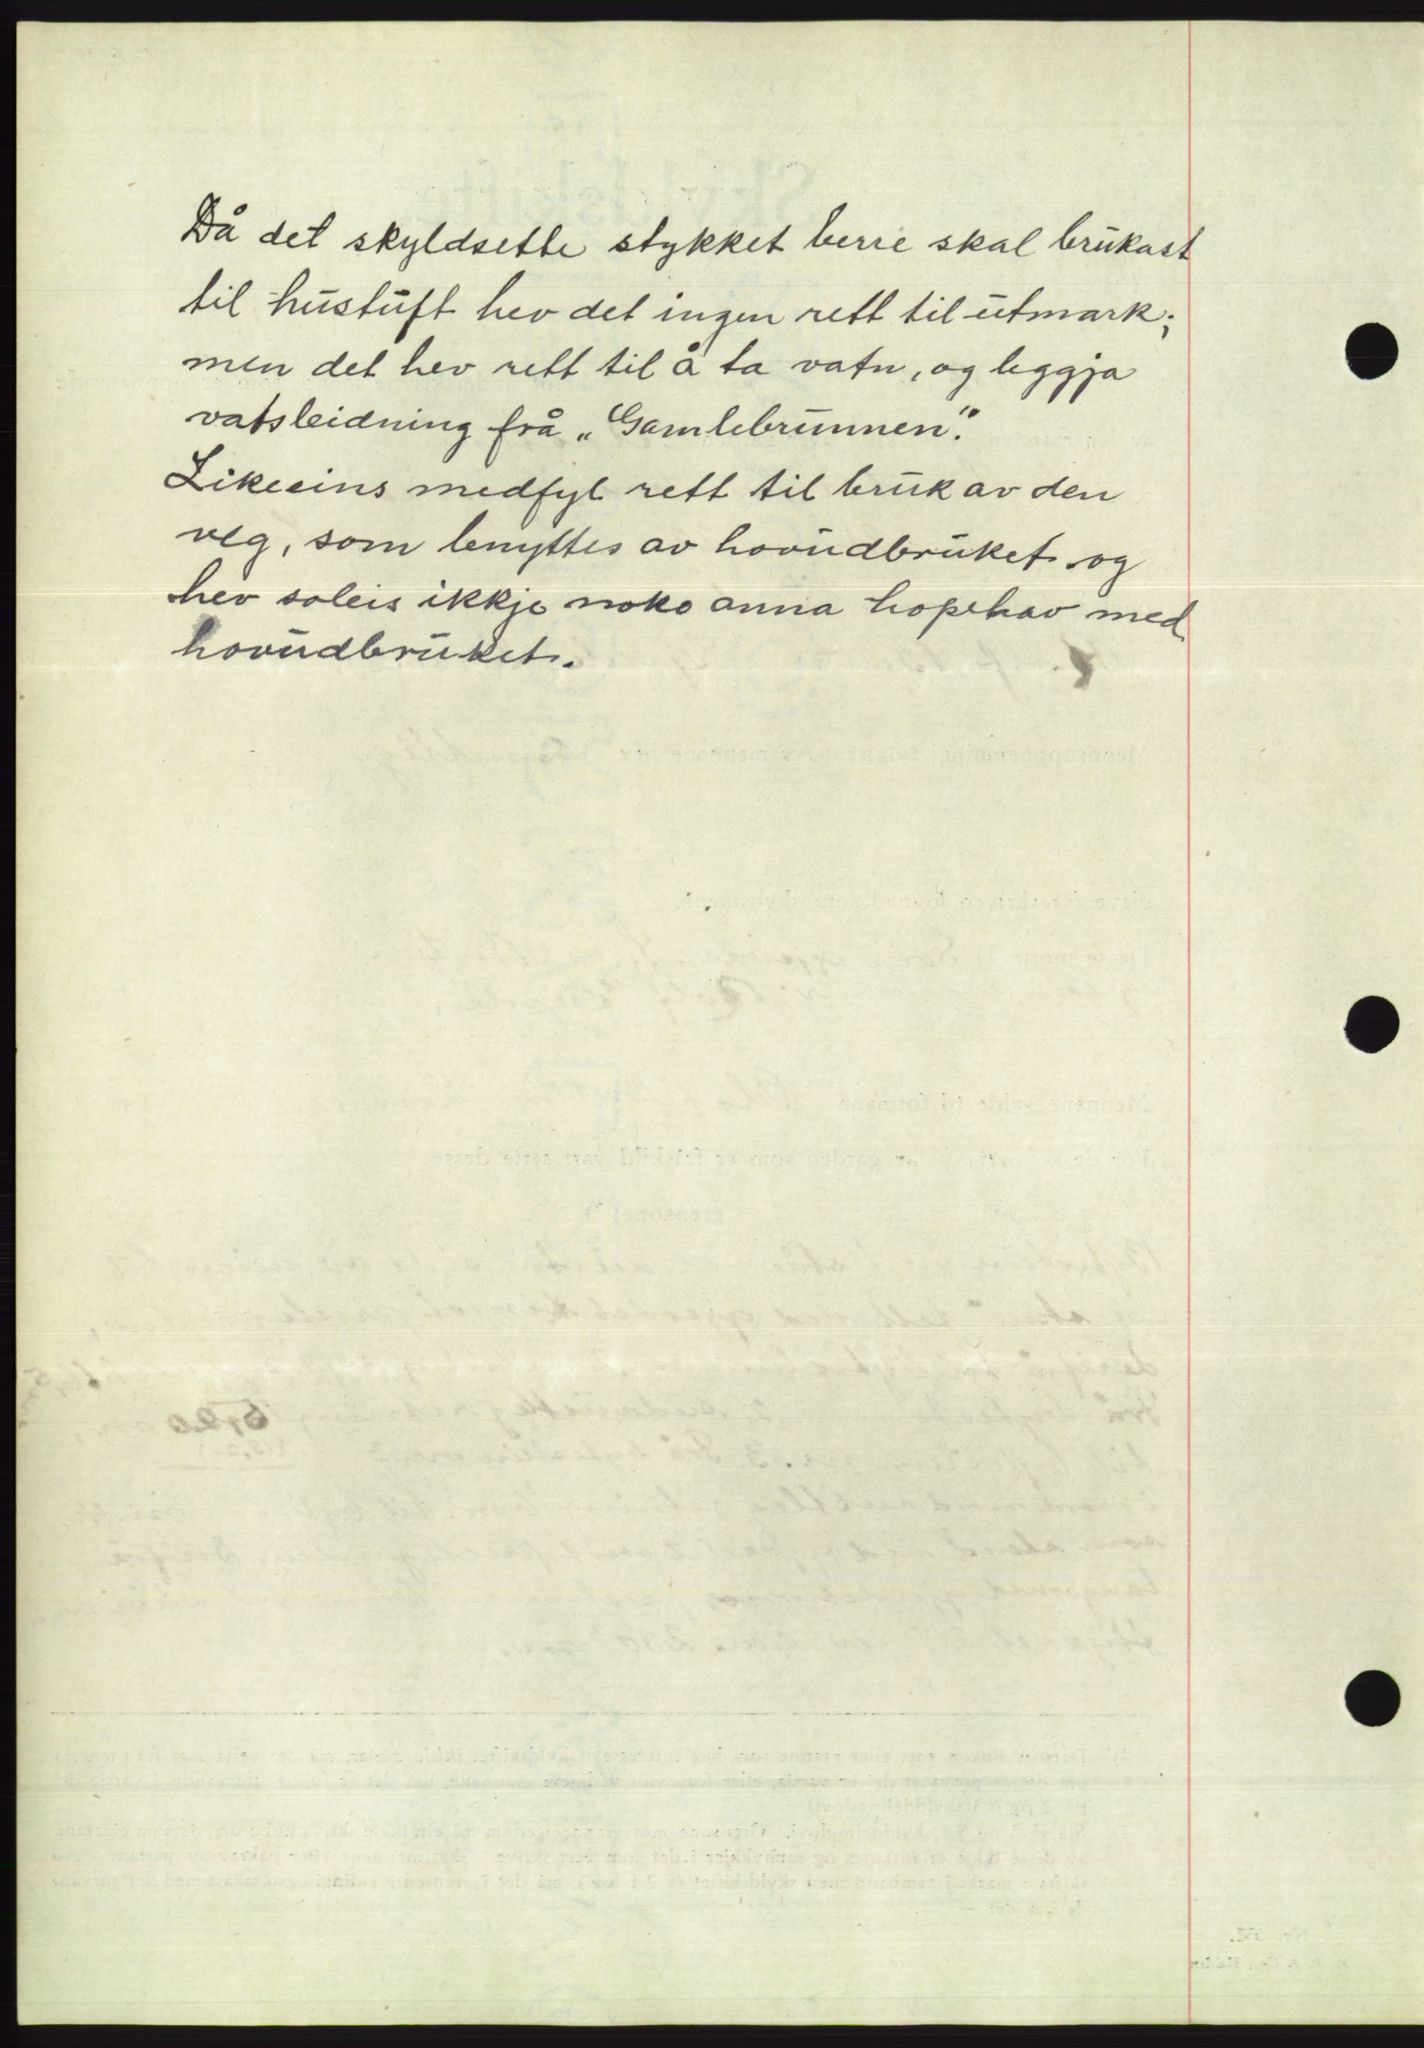 Då det skyldsette stykket berre skal brukast
til hustuft hev det ingen rett til utmark;
men det hev rett til å ta vatn, og leggja
vatsleidning frå „Gamlebrunnen".
Likeeins medfyl rett til bruk av den
veg, som benyttes av hovudbruket og
hev soleis ikkje noko anna hopehav med
hovudbruket.